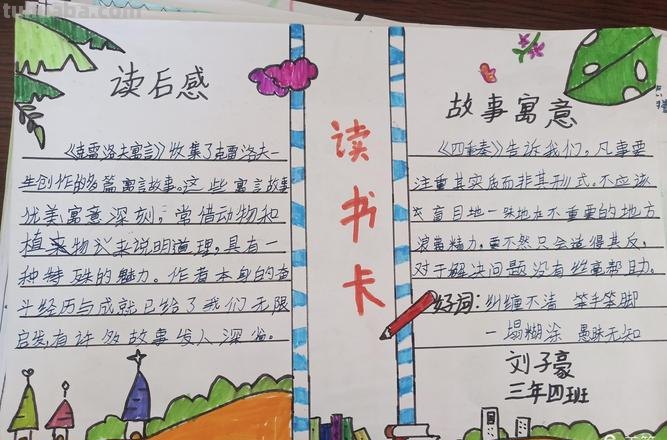 读后感
《克雷洛夫寓言》收集了克雷洛夫一
生创作的多篇寓言故事。这些寓言故事
优美寓意深刻，常借动物和
植来物议来说明道理，具有一
种特殊的魅力。作者本身的奋
斗经历与成就已给了我们无限
启发，有许多故事发人深省。
读书卡
故事寓意
《四重奏》告诉我们，凡事要
注重其实质而非其形式。不应该
盲目地一味地在不重要的地方
浪费精力，要不然只会适得其反，
对于解决问题没有丝毫帮助。
好词：纠缠不清 笨手笨脚
一塌糊涂 愚昧无知
刘子豪
三年四班